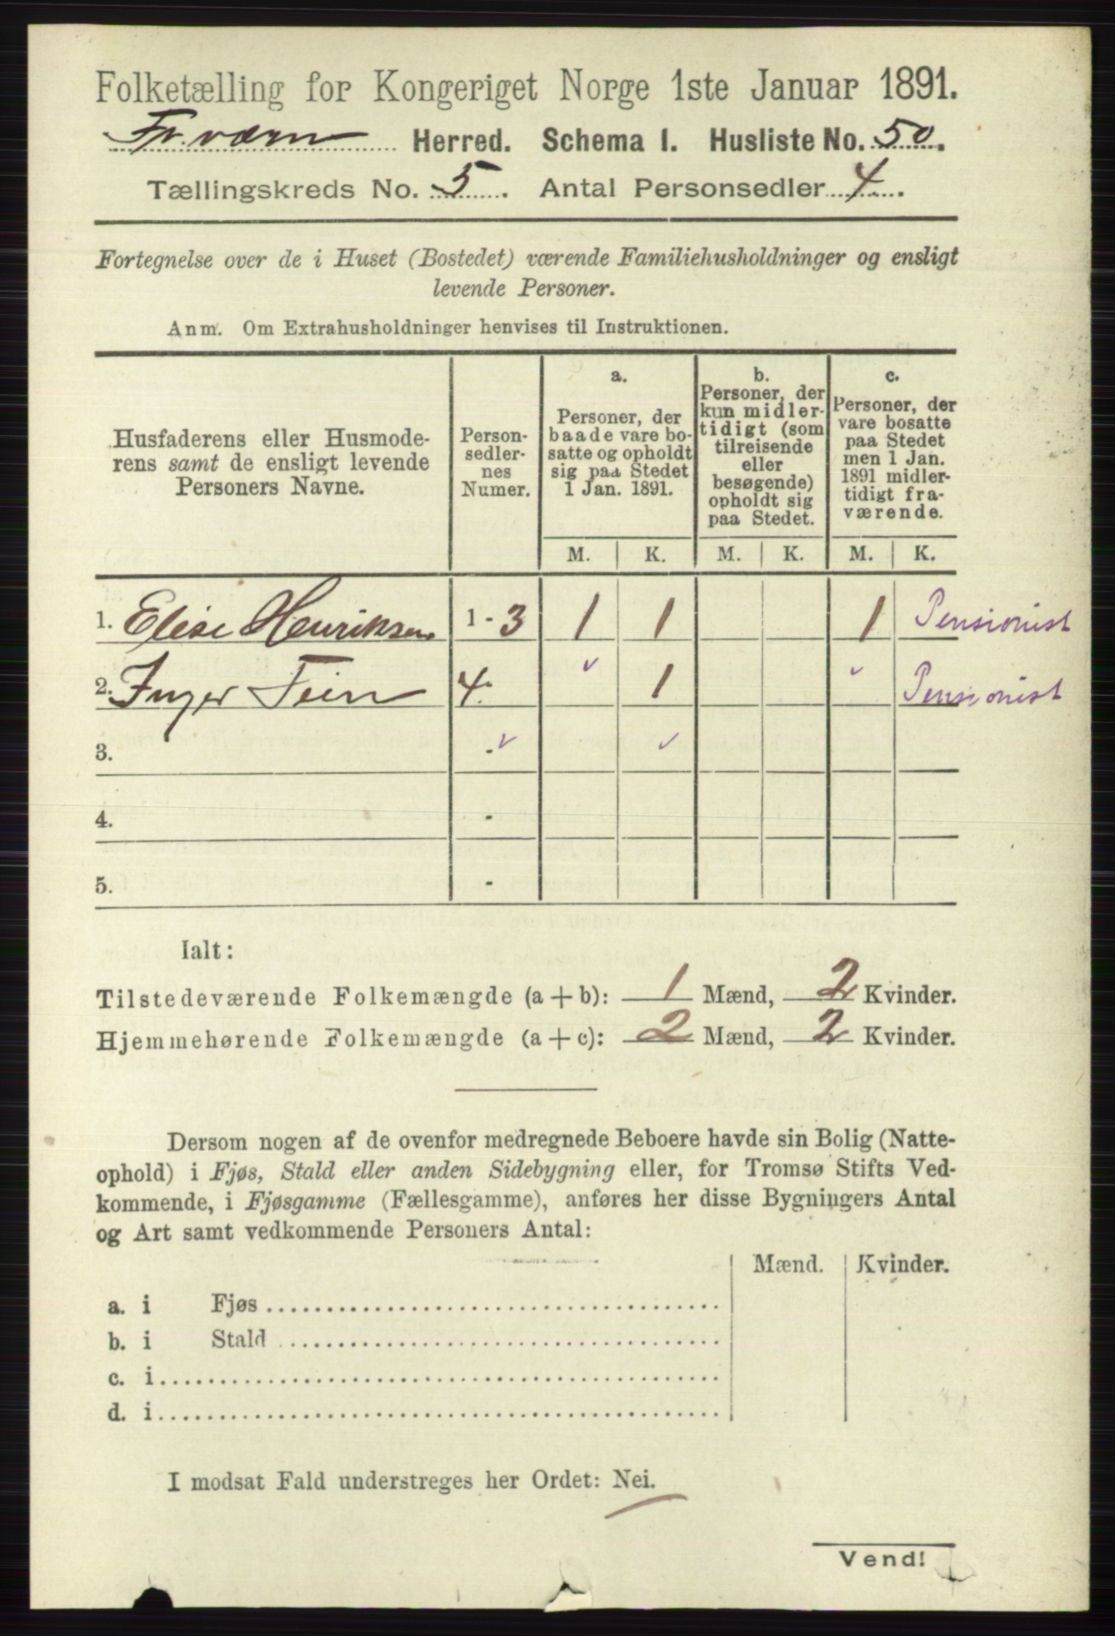 Folketælling for Kongeriget Norge 1ste Januar 1891.
Fr.værn Herred. Schema I. Husliste No. 50.
Tællingskreds No. 5. Antal Personsedler 4.
Fortegnelse over de i Huset (Bostedet) værende Familiehusholdninger og ensligt
levende Personer.
Anm. Om Extrahusholdninger henvises til Instruktionen.
Husfaderens eller Husmode-
rens samt de ensligt levende
Personers Navne.
Person-
sedler-
nes
Numer.
a.
Personer, der
baade vare bo-
satte og opholdt
sig paa Stedet
1 Jan. 1891.
b.
Personer, der
kun midler-
tidigt (som
tilreisende
eller
besøgende)
opholdt sig
paa Stedet.
c.
Personer, der
vare bosatte
paa Stedet
men 1 Jan.
1891 midler-
tidigt fra-
værende.
M. K. M. K. M. K.
1. Elise Henriksen 1 - 3 1 1 1 Pensionist
2. Inger Fein 4. 1 Pensionist
3. -
4. -
5. -
Ialt:
Tilstedeværende Folkemængde (a + b): 1 Mænd, 2 Kvinder.
Hjemmehørende Folkemængde (a + c): 2 Mænd, 2 Kvinder.
Dersom nogen af de ovenfor medregnede Beboere havde sin Bolig (Natte-
ophold) i Fjøs, Stald eller anden Sidebygning eller, for Tromsø Stifts Ved-
kommende, i Fjøsgamme (Fællesgamme), anføres her disse Bygningers Antal
og Art samt vedkommende Personers Antal:
Mænd. Kvinder.
a. i Fjøs
b. i Stald
c. i
d. i
I modsat Fald understreges her Ordet: Nei.
Vend!